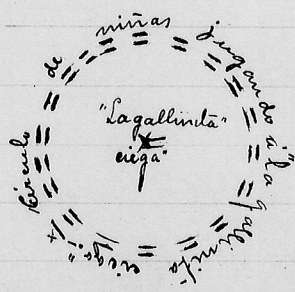 Círculo de niñas jugando á "La gallinita ciega"
"La gallinita
ciega"